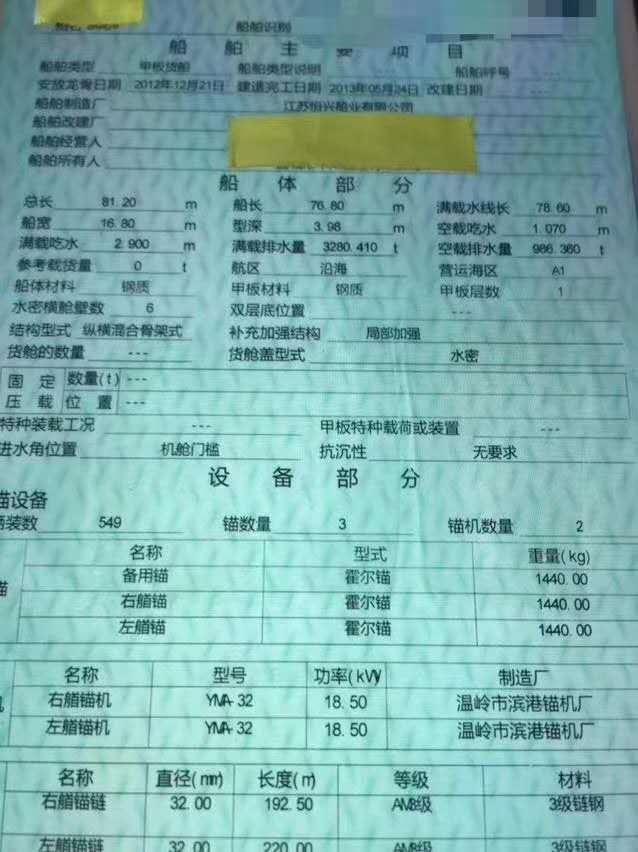 船舶识别
船舶主要项目
船舶类型 甲板货船 船舶类型说明 船舶呼号 ---
安放龙骨日期 2012年12月21日 建造完工日期 2013年05月24日 改建日期 ---
船舶制造厂 江苏恒兴船业有限公司
船舶改建厂
船舶经营人
船舶所有人
船体部分
总长 81.20 m 船长 76.80 m 满载水线长 78.60 m
船宽 16.80 m 型深 3.98 m 空载吃水 1.070 m
满载吃水 2.900 m 满载排水量 3280.410 t 空载排水量 986.360 t
参考载货量 0 t 航区 沿海 营运海区 A1
船体材料 钢质 甲板材料 钢质 甲板层数 1
水密横舱壁数 6 双层底位置 ---
结构型式 纵横混合骨架式 补充加强结构 局部加强
货舱的数量 --- 货舱盖型式 水密
固定 数量(t) ---
压载 位置 ---
特种装载工况 --- 甲板特种载荷或装置 ---
进水角位置 机舱门槛 抗沉性 无要求
设备部分
锚设备
装数 549 锚数量 3 锚机数量 2
名称 型式 重量(kg)
备用锚 霍尔锚 1440.00
锚 右艏锚 霍尔锚 1440.00
左艏锚 霍尔锚 1440.00
名称 型号 功率(kW) 制造厂
右艏锚机 YMA-32 18.50 温岭市滨港锚机厂
左艏锚机 YMA-32 18.50 温岭市滨港锚机厂
名称 直径(mm) 长度(m) 等级 材料
右艏锚链 32.00 192.50 AM3级 3级链钢
左艏锚链 32.00 220.00 AM3级 3级链钢